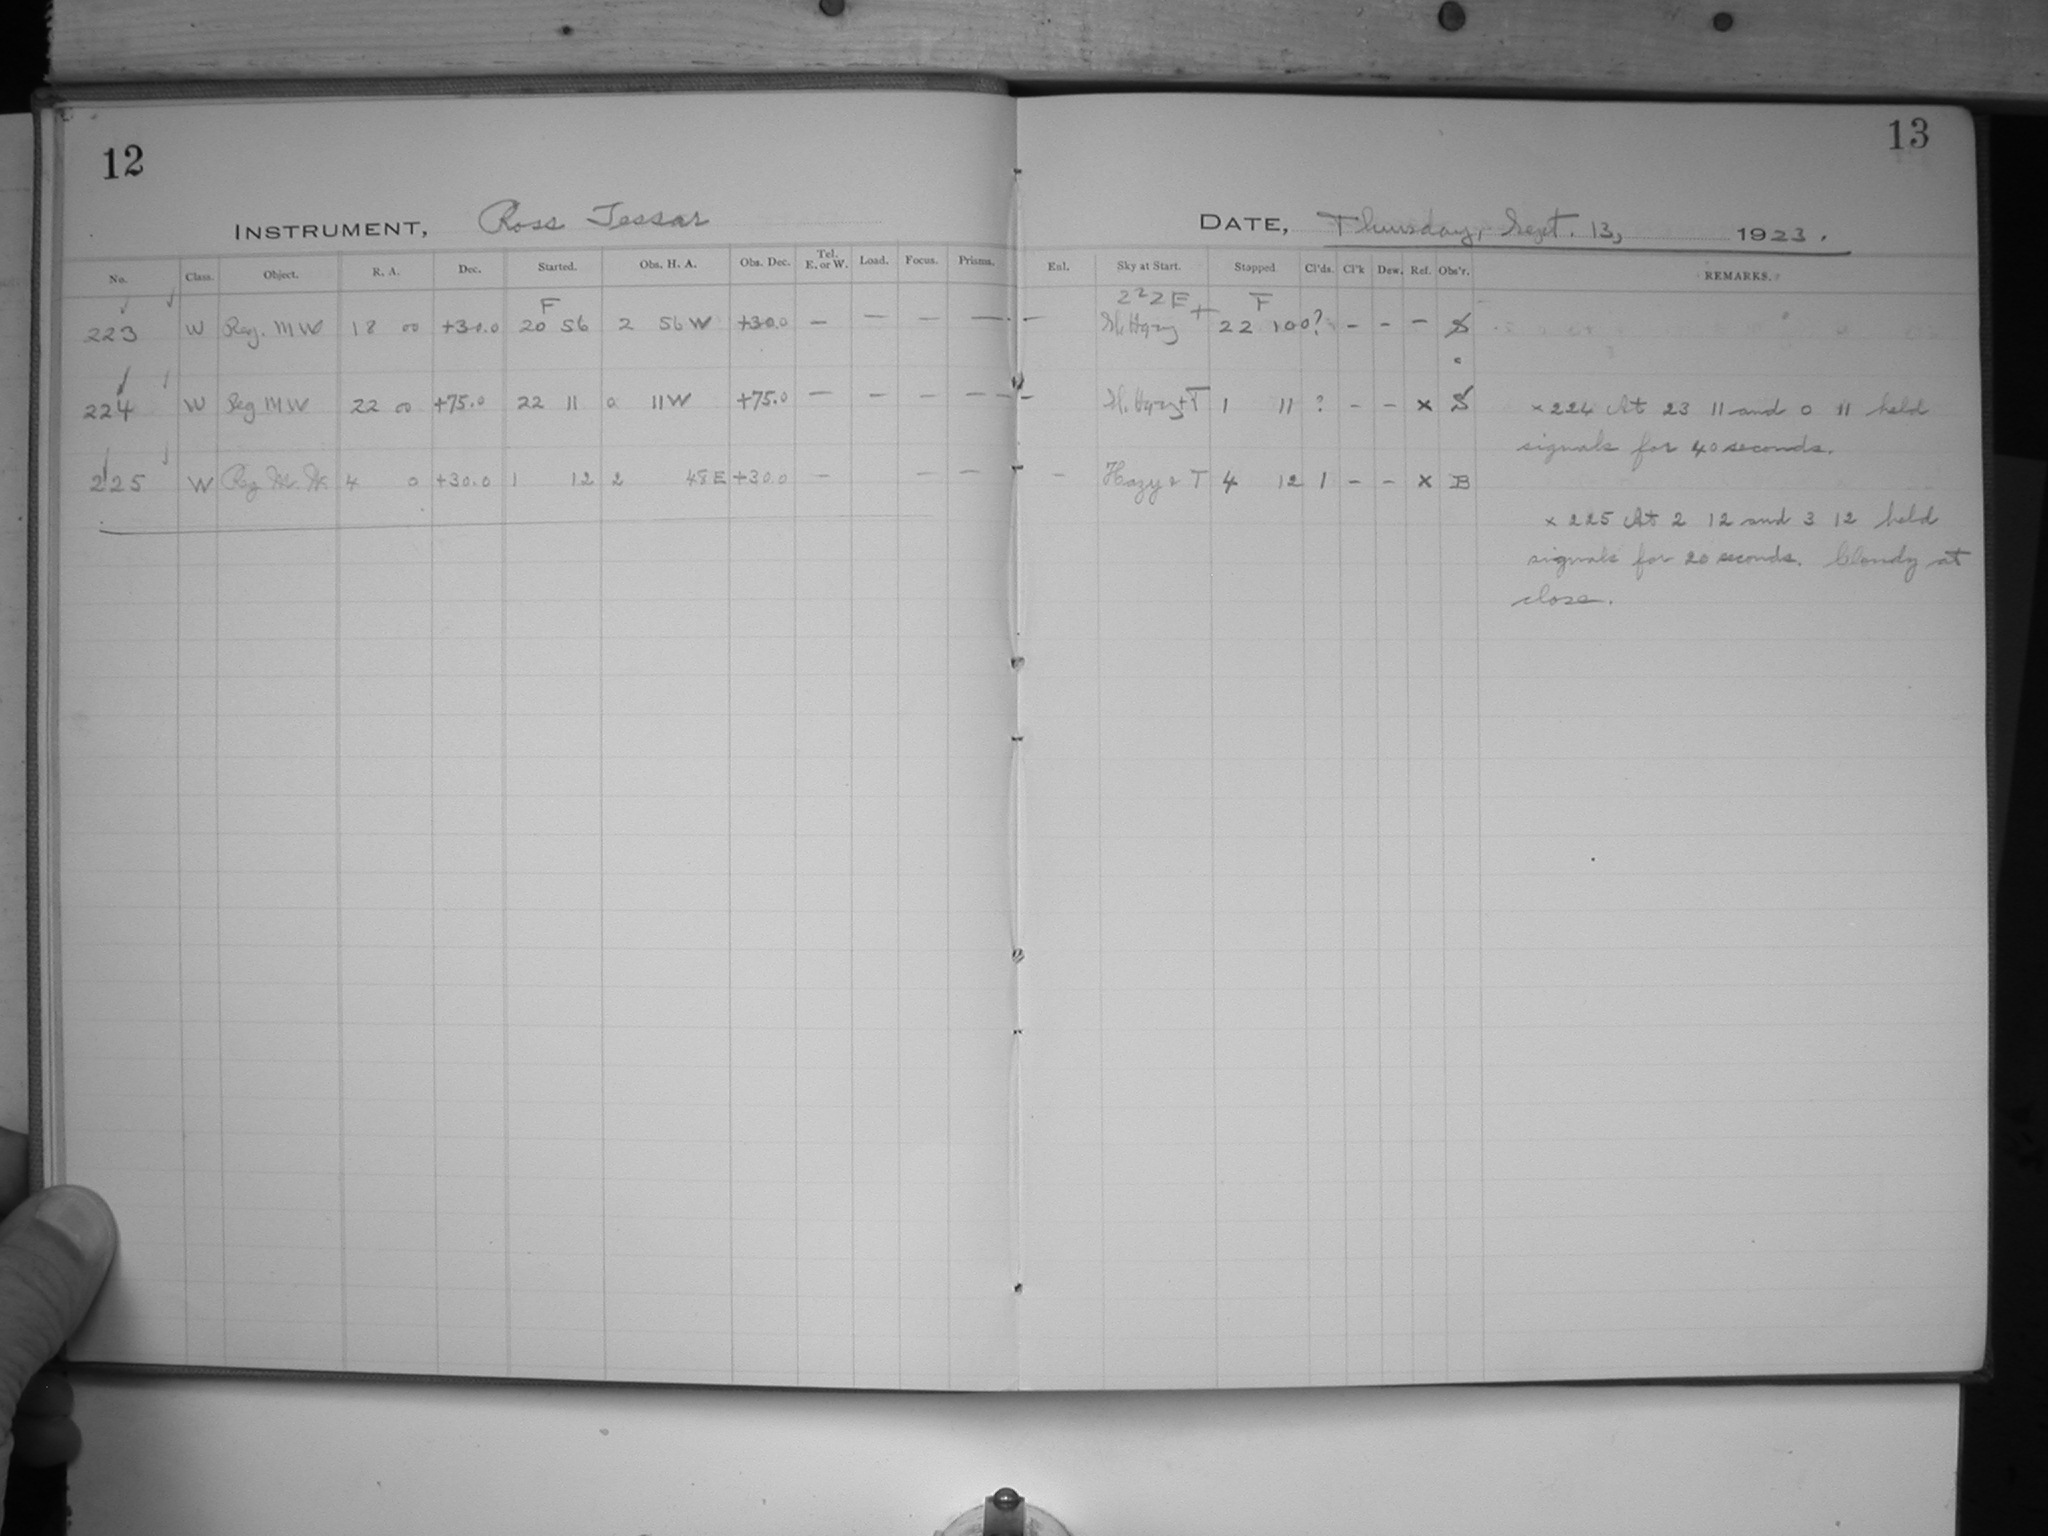 12
13
INSTRUMENT, Ross Tessar
DATE, Thursday, Sept. 13, 1923.
No. Class. Object. R. A. Dec. Started. Obs. H. A. Obs. Dec. Tel. E. or W. Load. Focus. Prisms. Enl. Sky at Start. Stopped Cl'ds. Cl'k Dew. Ref. Obs'r. REMARKS.
F 222E F
223 W Reg. MW 18 00 +30.0 20 56 2 56 W +30.0 — — — — — Sl. Hazy + 22 10 0? - - - S
224 W Reg MW 22 00 +75.0 22 11 0 11W +75.0 — — — — — Sl. Hazy+T 1 11 ? - - x S
x 224 At 23 11 and 0 11 held
signals for 40 seconds.
225 W Reg M. W. 4 0 +30.0 1 12 2 48 E +30.0 — — — — Hazy & T 4 12 1 - - x B
x 225 At 2 12 and 3 12 held
signals for 20 seconds. Cloudy at
close.